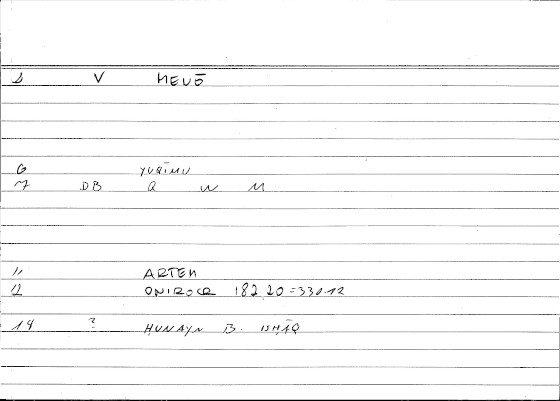 1 V MENŌ
6 YUQĪMU
7 DB Q W M
11 ARTEM
12 ONIROCR 182,20=330,12
14 ? ḤUNAYN B. ISḤĀQ